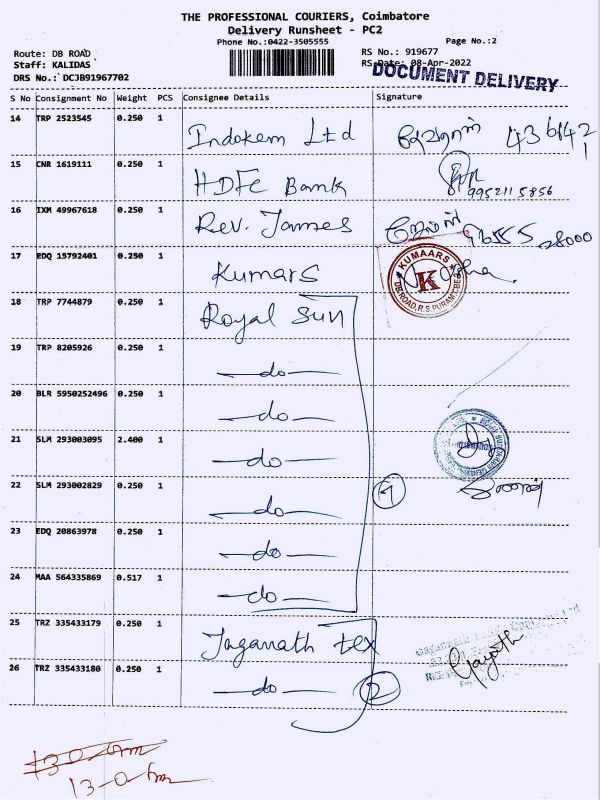 THE PROFESSIONAL COURIERS, Coimbatore
Delivery Runsheet - PC2
Phone No.:0422-3505555
Page No.:2
Route: DB ROAD
Staff: KALIDAS
DRS No.: DCJB91967702
RS No.: 919677
RS Date: 08-Apr-2022
DOCUMENT DELIVERY
S No Consignment No Weight PCS Consignee Details Signature
14 TRP 2523545 0.250 1 Indokem Ltd
15 CNR 1619111 0.250 1 HDFC Bank 9952115856
16 IXM 49967618 0.250 1 Rev. James
17 EDQ 15792401 0.250 1 Kumars
KUMAARS
K
DB ROAD, R.S.PURAM, CBE
18 TRP 7744879 0.250 1 Royal Sun
19 TRP 8205926 0.250 1 -do-
20 BLR 5950252496 0.250 1 -do-
21 SLM 293003095 2.400 1 -do-
22 SLM 293002829 0.250 1 -do- 7
23 EDQ 20863978 0.250 1 -do-
24 MAA 564335869 0.517 1 -do-
25 TRZ 335433179 0.250 1 Jaganath tex
26 TRZ 335433180 0.250 1 -do- 2